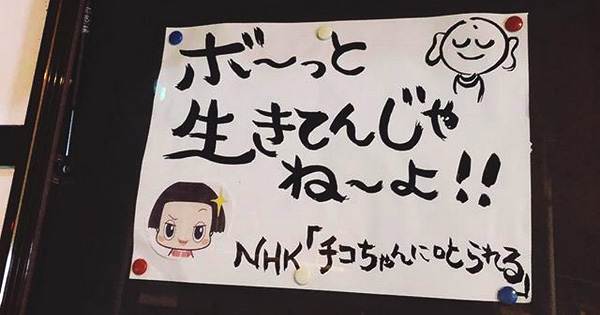 ボ〜っと
生きてんじゃ
ね〜よ!!
NHK「チコちゃんに叱られる」